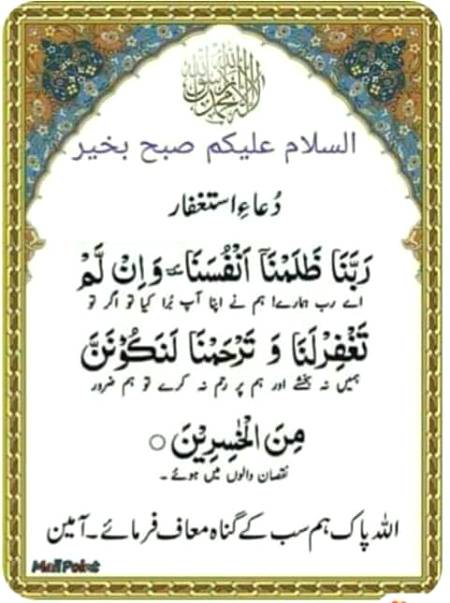 لا اله الا الله محمد رسول الله
السلام علیکم صبح بخیر
دُعاءِ استغفار
رَبَّنَا ظَلَمْنَاۤ اَنْفُسَنَا ٚ وَ اِنْ لَّمْ
اے رب ہمارے! ہم نے اپنا آپ بُرا کیا تو اگر تو
تَغْفِرْلَنَا وَ تَرْحَمْنَا لَنَكُوْنَنَّ
ہمیں نہ بخشے اور ہم پر رحم نہ کرے تو ہم ضرور
مِنَ الْخٰسِرِيْنَ ○
نقصان والوں میں ہوئے۔
اللہ پاک ہم سب کے گناہ معاف فرمائے۔ آمین
MallPoint